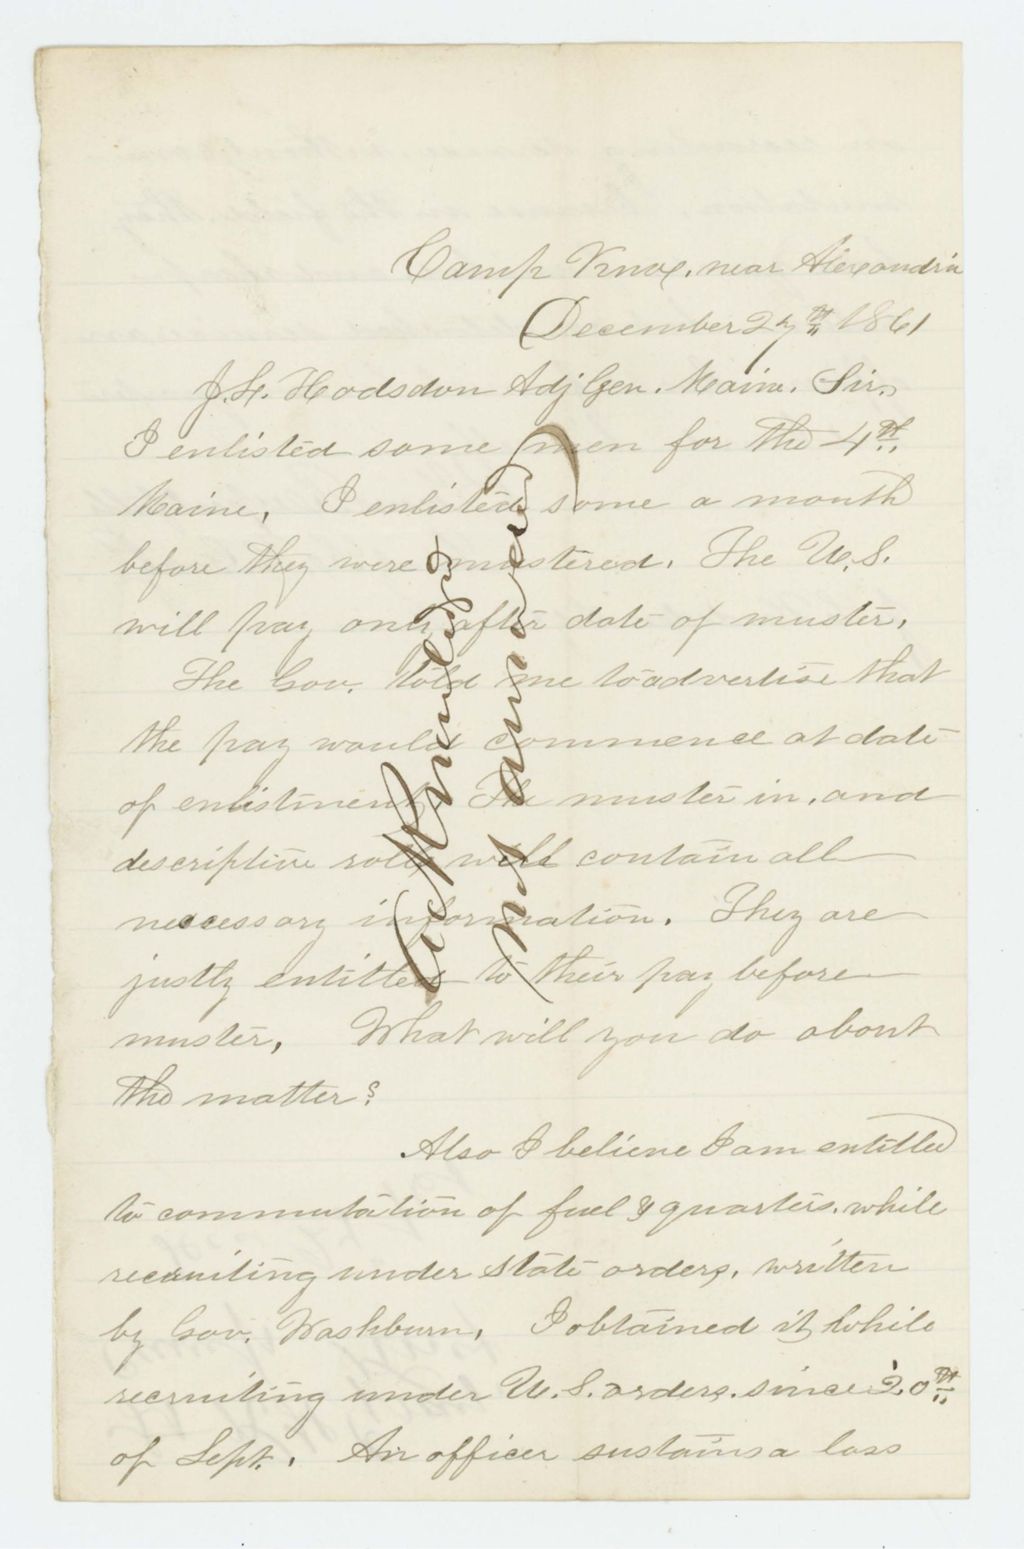 Camp Knox, near Alexandria
December 27th 1861
J. L. Hodsdon Adj Gen. Maine. Sir.
I enlisted some men for the 4th
Maine, I enlisted some a month
before they were mustered. The U.S.
will pay only after date of muster.
The Gov. told me to advertise that
the pay would commence at date
of enlistment. The muster in, and
descriptive rolls will contain all
necessary information. They are
justly entitled to their pay before
muster, What will you do about
the matter?
Also I believe I am entitled
to commutation of fuel & quarters, while
recruiting under State orders, written
by Gov. Washburn, I obtained it while
recruiting under U.S. orders, since 20th
of Sept. An officer sustains a loss
not answered